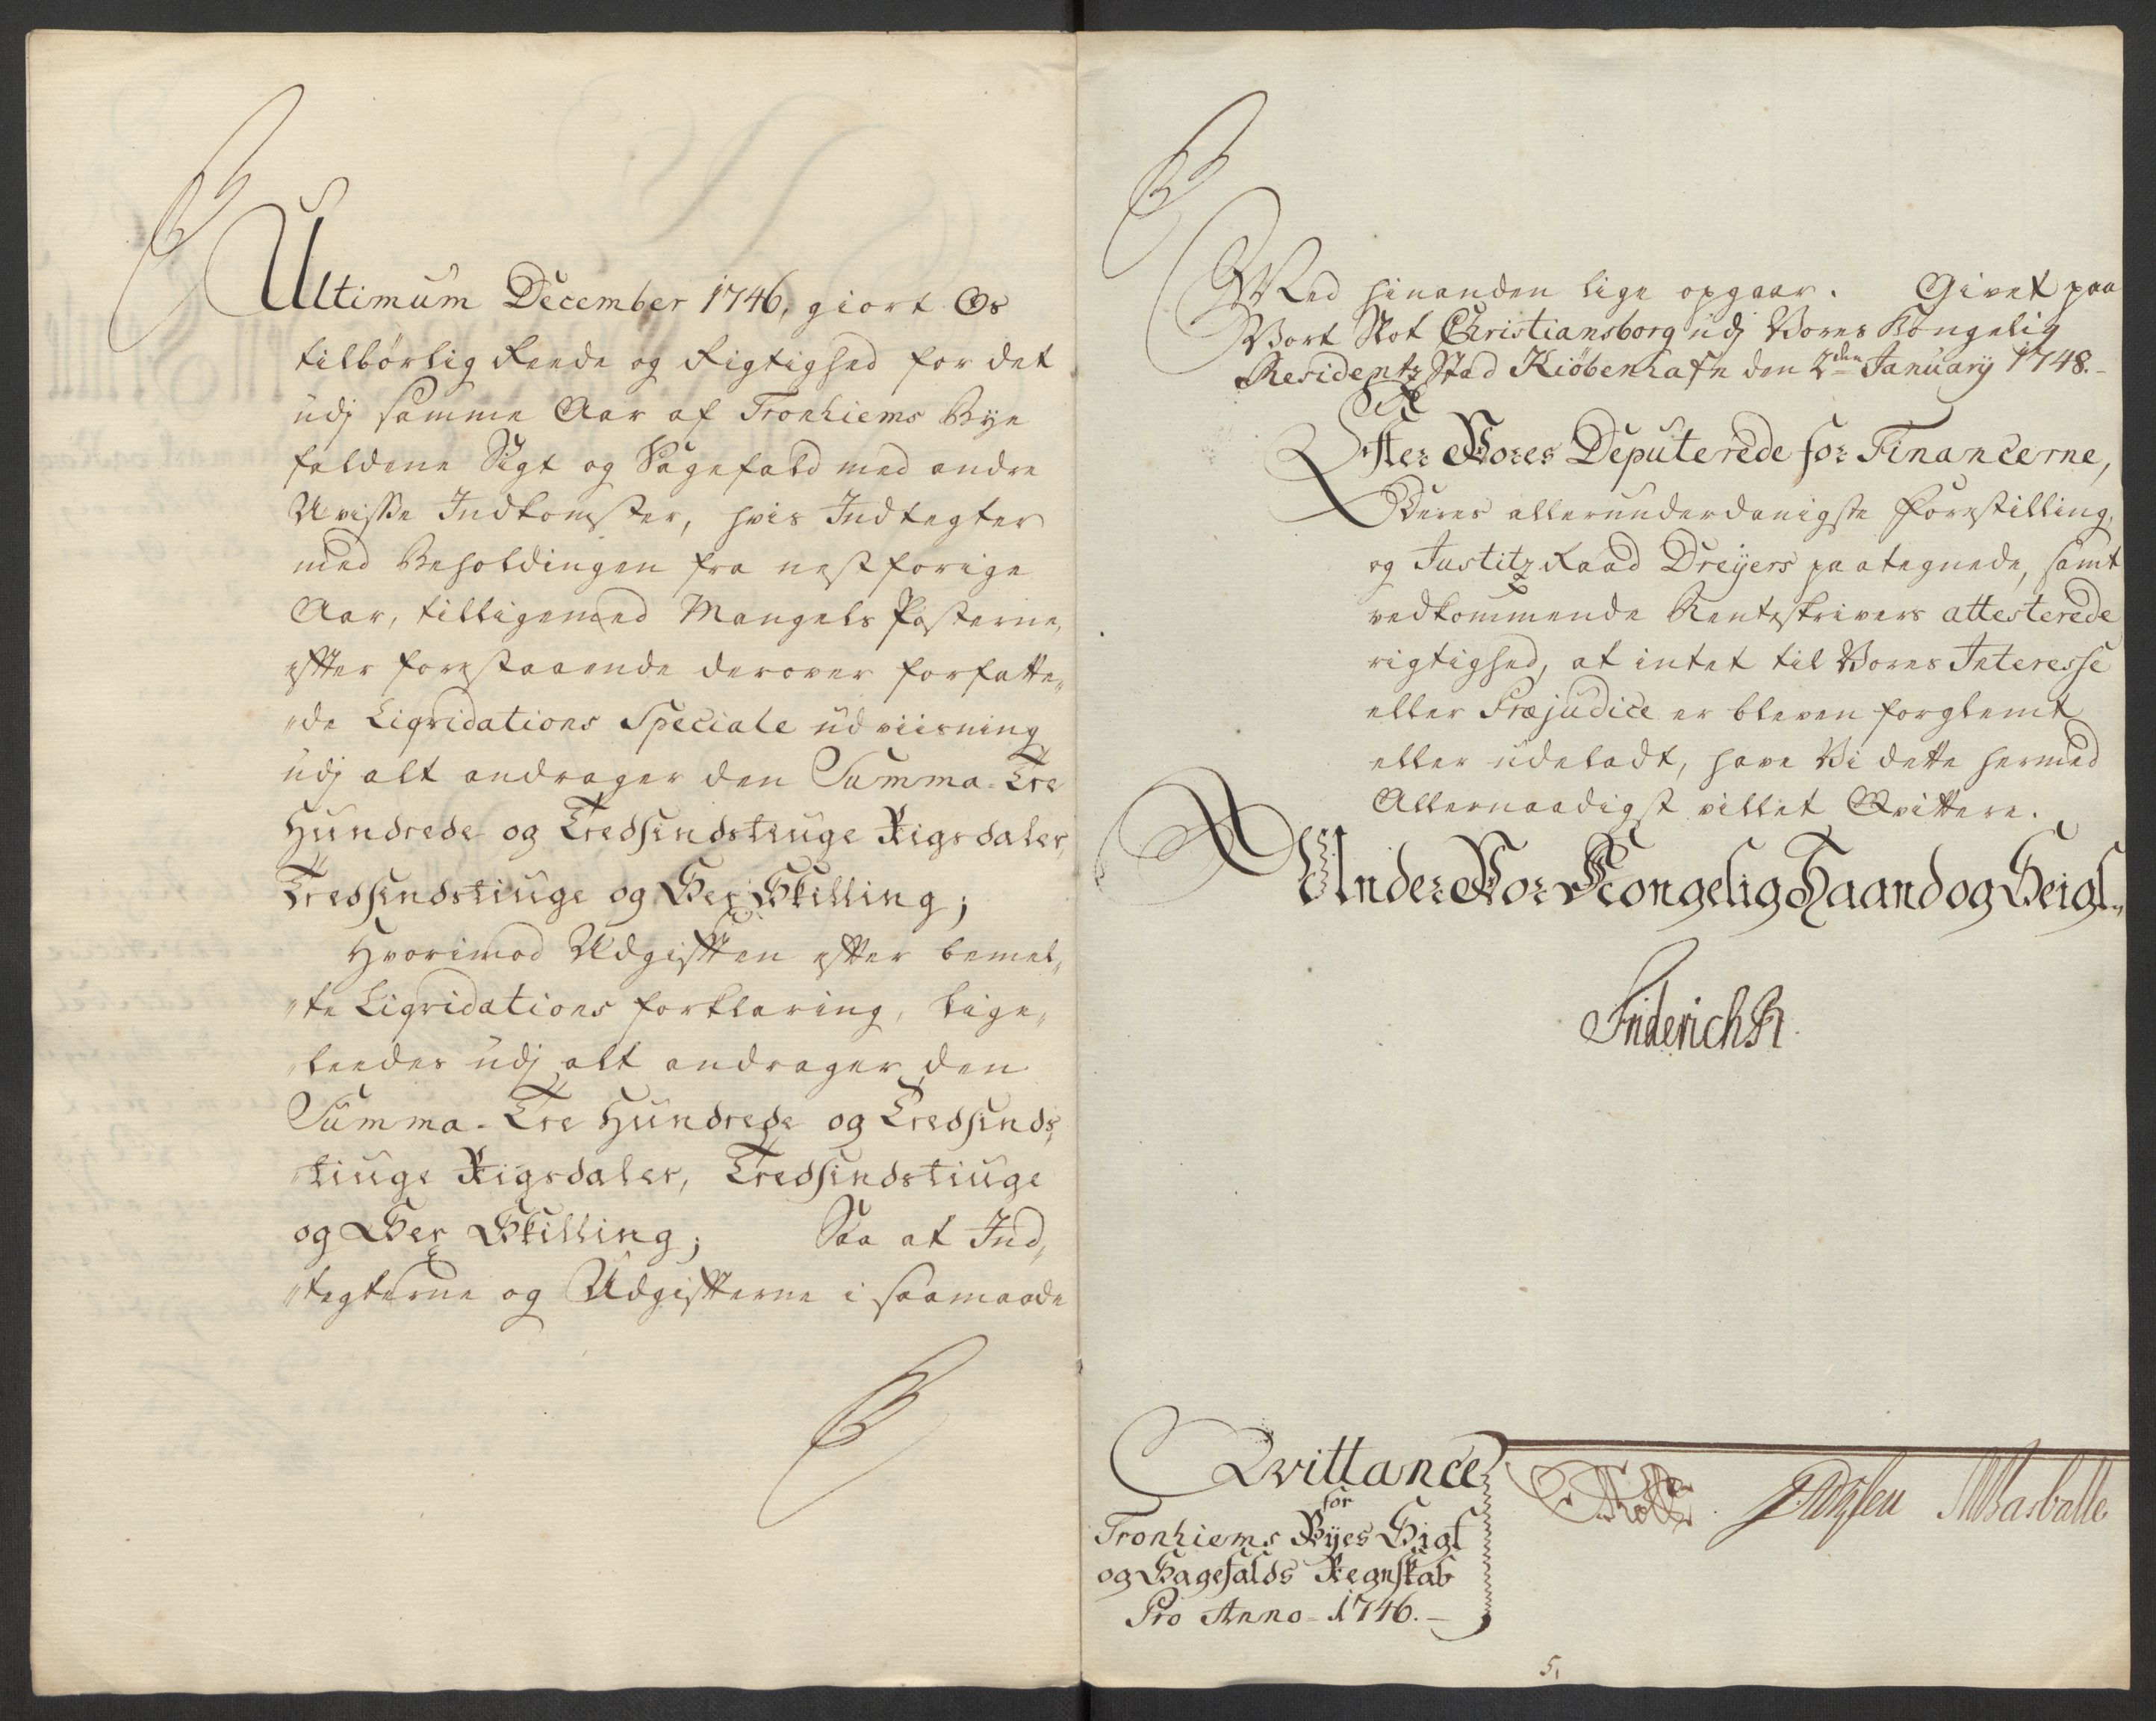 Ultimum December 1746, giort Os
tilbørlig Reede og Rigtighed for det
udj samme Aar af Tronhiems Bye
faldene Sigt og Sagefald med andre
Uvisse Indkomster, hvis Indtegter
med Beholdingen fra nestforige
Aar, tilligemed Mangels Posterne,
efter forestaaende derover forfatte„
„de Liqvidations Speciale udviisning
udj alt andrager den Summa - Tre
Hundrede og Tredsindstiuge Rigsdaler,
Tredsindstiuge og Sex Skilling;
Hvorimod Udgiften efter bemel„
„te Liqvidations forklaring, lige„
„leedes udj alt andrager den
Summa - Tre Hundrede og Tredsinds„
„tiuge Rigsdaler, Tredsindstiuge
og Sex Skilling; Saa at Ind„
„tegterne og Udgifterne i saamaade
Med hinanden lige opgaar. Givet paa
Vort Slot Christiansborg udj Vores Kongelig
Residentz Stad Kiøbenhafn den 2den January 1748.-
Efter Vores Deputerede for Financerne,
Deres allerunderdanigste Forestilling,
og Justitz Raad Dreyers paategnede, samt
vedkommende Renteskrivers attesterede
rigtighed, at intet til Vores Interesse
eller Præjudice er bleven forglemt
eller udeladt, have Vi dette hermed
Allernaadigst villet Qvittere.
Under Vor Kongelig Haand og Seigl„
Friderich R
Qvittance
for
Tronhiems Byes Sigt
og Sagefalds Regnskab
Pro Anno - 1746. -
5,